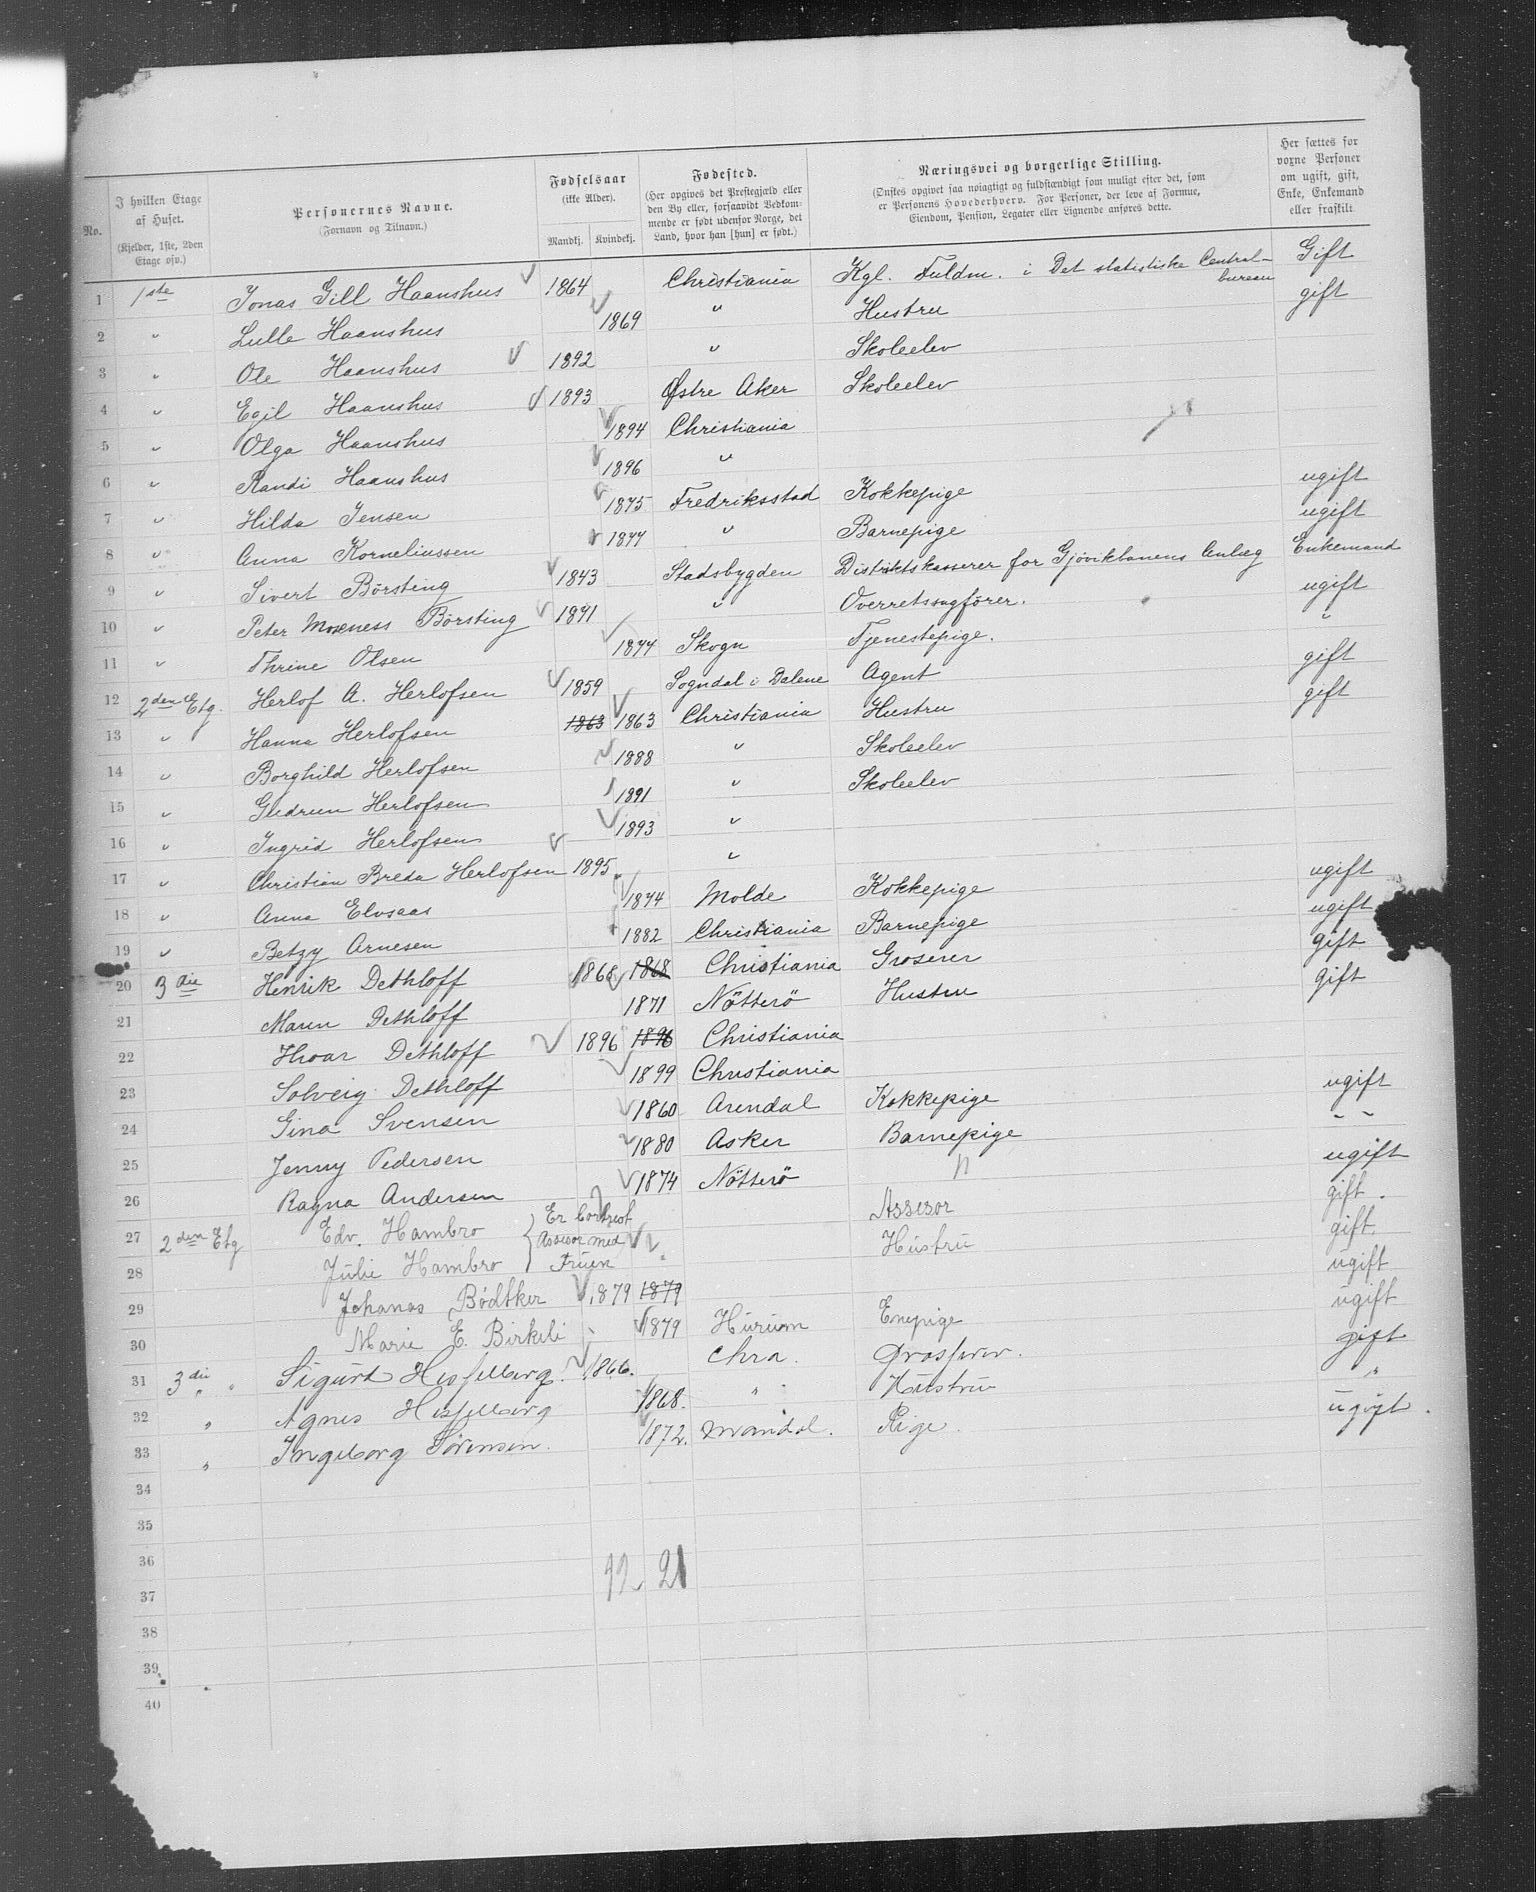 No. | I hvilken Etage af Huset. (Kjelder, 1ste, 2den Etage osv.) | Personernes Navne. (Fornavn og Tilnavn.) | Fødselsaar (ikke Alder). Mandkj. Kvindekj. | Fødested. (Her opgives det Prestegjæld eller den By eller, forsaavidt Vedkommende er født udenfor Norge, det Land, hvor han [hun] er født.) | Næringsvei og borgerlige Stilling. (Ønskes opgivet saa nøiagtigt og fuldstændigt som muligt efter det, som er Personens Hovederhverv. For Personer, der leve af Formue, Eiendom, Pension, Legater eller Lignende anføres dette. | Her sættes for voxne Personer om ugift, gift, Enke, Enkemand eller fraskilt.
1 1ste Jonas Gill Haanshus 1864 Christiania Kgl. Fuldm. i Det statistiske Central-bureau Gift
2 " Lulle Haanshus 1869 " Hustru gift
3 " Ole Haanshus 1892 " Skoleelev
4 " Egil Haanshus 1893 Østre Aker Skoleelev
5 " Olga Haanshus 1894 Christiania
6 " Randi Haanshus 1896 "
7 " Hilda Jensen 1875 Fredriksstad Kokkepige ugift
8 " Anna Korneliussen 1877 " Barnepige ugift
9 " Sivert Børsting 1843 Stadsbygden Distriktskasserer for Gjøvikbanens Anlæg Enkemand
10 " Peter Moxness Børsting 1871 " Overretssagfører. ugift
11 " Thrine Olsen 1874 Skogn Tjenestepige. "
12 2den Etg. Herlof A. Herlofsen 1859 Sogndal i Dalene Agent gift
13 " Hanna Herlofsen 1863 1863 Christiania Hustru gift
14 " Borghild Herlofsen 1888 " Skoleelev
15 " Gudrun Herlofsen 1891 " Skoleelev
16 " Ingrid Herlofsen 1893 "
17 " Christian Breda Herlofsen 1895 "
18 " Anna Elvsaas 1874 Molde Kokkepige ugift
19 " Betzy Arnesen 1882 Christiania Barnepige ugift
20 3die Henrik Dethloff 1868 1868 Christiania Groserer gift
21 Maren Dethloff 1871 Nötterö Hustru gift
22 Hroar Dethloff 1896 1896 Christiania
23 Solveig Dethloff 1899 Christiania
24 Gina Svensen 1860 Arendal Kokkepige ugift
25 Jenny Pedersen 1880 Asker Barnepige - -
26 Ragna Andersen 1874 Nötterö " ugift
27 2den Etg Edv. Hambro Er bortreist Assesor gift.
28 Julie Hambro Assesor med Fruen Hustru gift.
29 Johanas Bødtker 1879 1879 ugift
30 Marie E. Birkeli 1879 Hurum Enepige ugift
31 3die " Sigurd Hesselberg. 1866. Chra. Grosserer. gift
32 " Agnes Hesselberg 1868. " Hustru "
33 " Ingeborg Sørensen. 1872. Mandal. Pige. ugift.
34
35
36
37
12 21
38
39
40